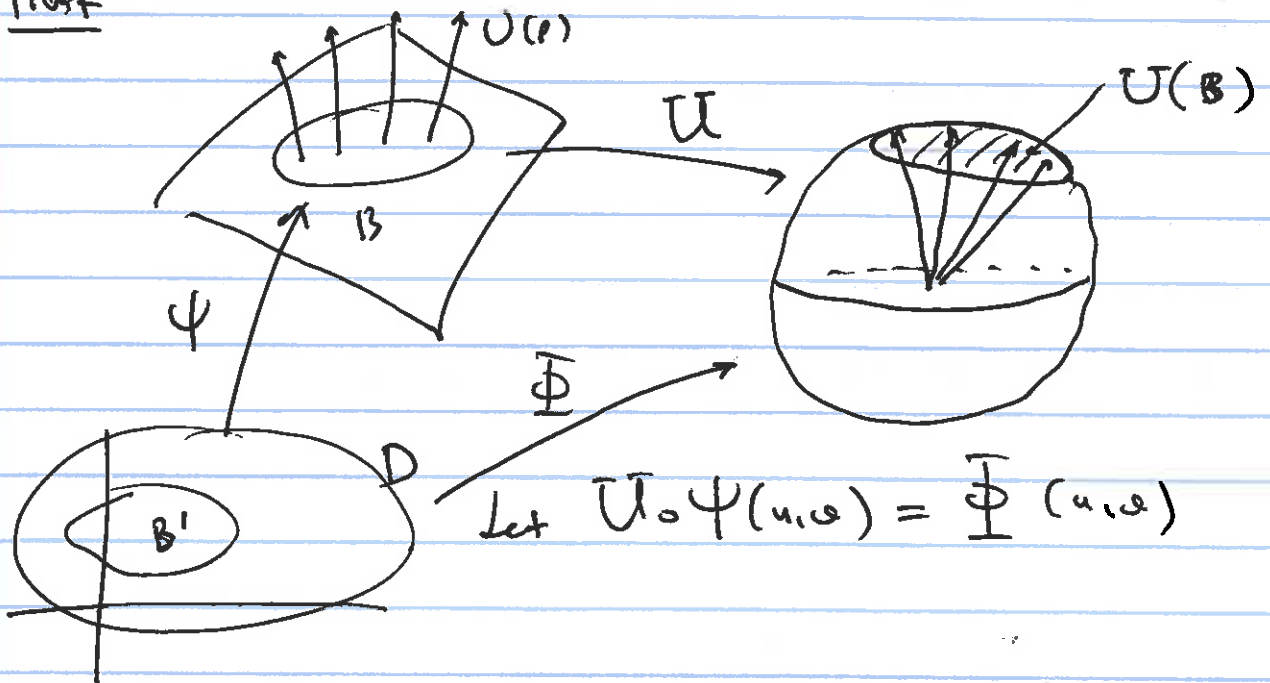 Proof
U(p)
U
U(B)
B
Ψ
Φ
D
B'
Let U∘Ψ(u,v) = Φ(u,v)